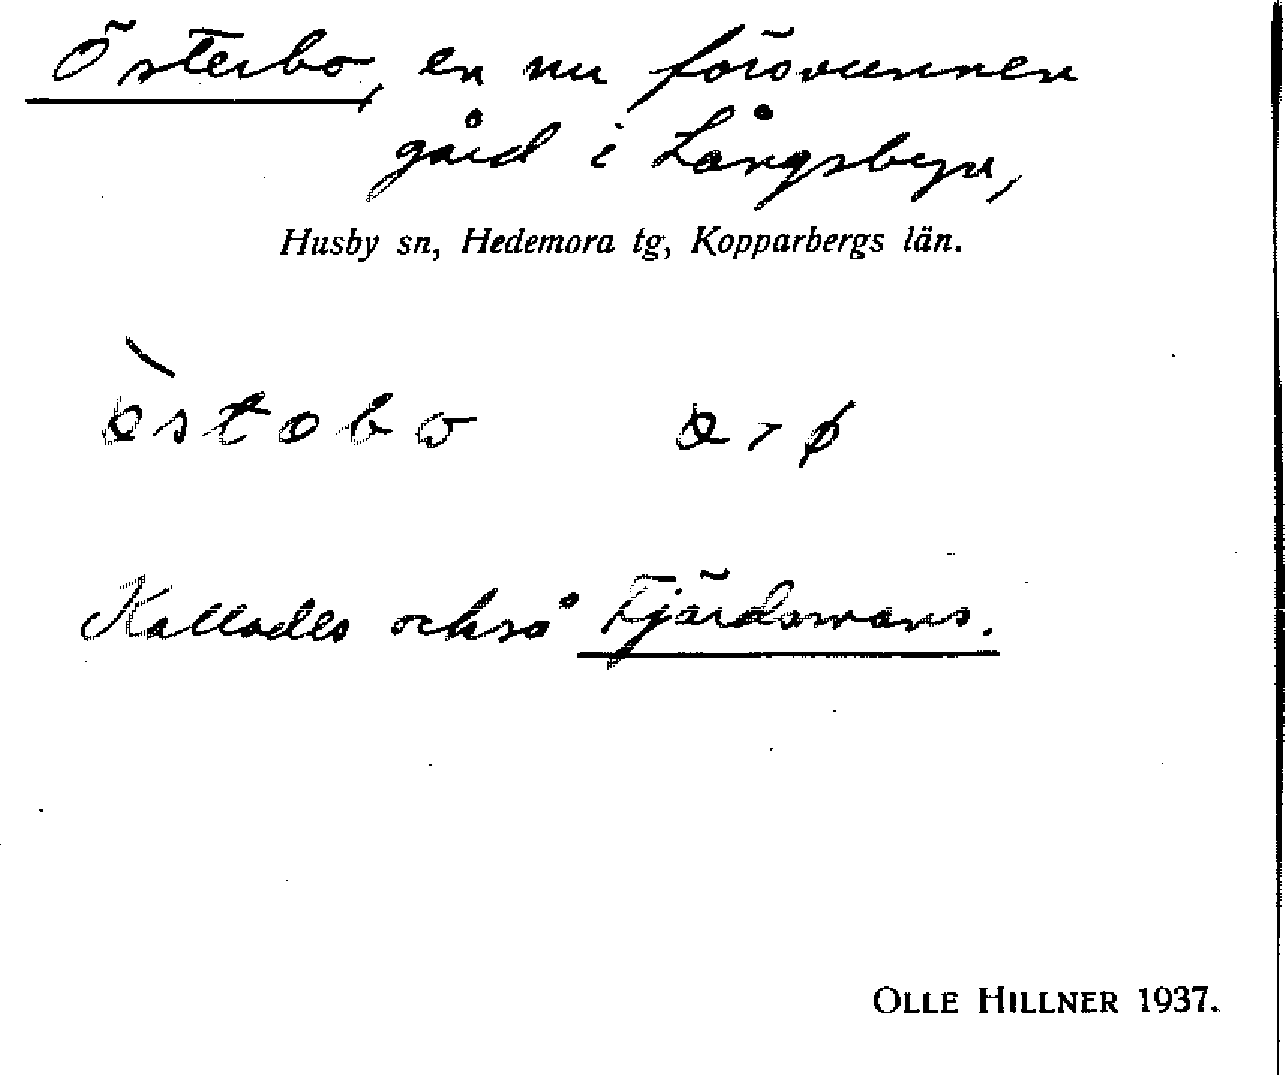 Österbo, en nu försvunnen
gård i Långsbyn,
Husby sn, Hedemora tg, Kopparbergs län.
Kallades också Fjärdsmans.
OLLE HILLNER 1937.